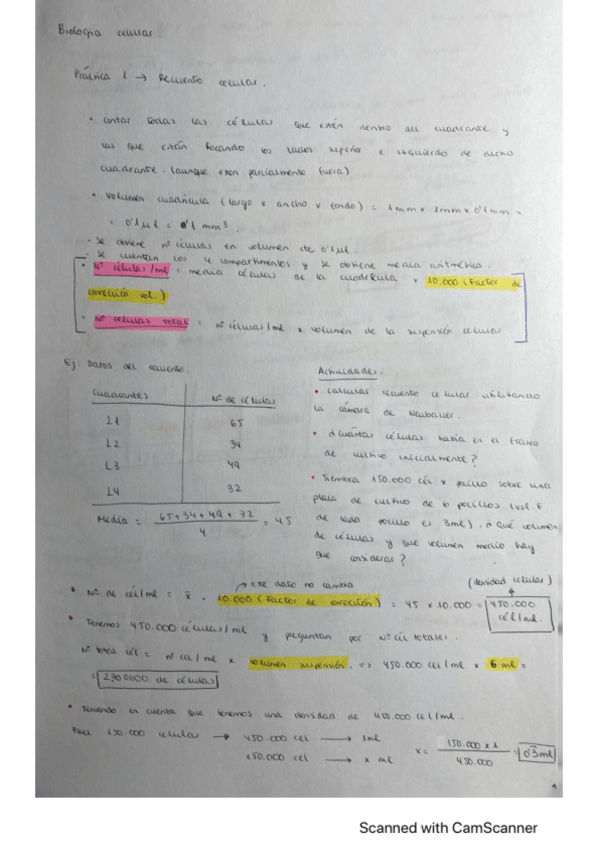 Biología celular.
Práctica 1 → Recuento celular.
• Contar todas las células que estén dentro del cuadrante y
las que están tocando los lados superior e izquierdo de dicho
cuadrante. (aunque estén parcialmente fuera)
• Volumen cuadrícula (largo x ancho x fondo) = 1mm x 1mm x 0'1mm =
= 0'1 µl = 0'1 mm³.
- Se obtiene nº células en volumen de 0'1 µl.
- Se cuentan los 4 compartimentos y se obtiene media aritmética.
• Nº células/ml = media células de la cuadrícula x 10.000 (Factor de
corrección vol.)
• Nº células total = nº células/ml x volumen de la suspensión celular.
Ej: Datos del recuento.
Cuadrantes Nº de células
L1 65
L2 34
L3 49
L4 32
Media = 65+34+49+32 / 4 = 45
Actividades.
• Calcular recuento celular utilizando
la cámara de Neubauer.
• ¿Cuántas células había en el frasco
de cultivo inicialmente?
• Siembra 150.000 cél x pocillo sobre una
placa de cultivo de 6 pocillos (vol. F
de cada pocillo es 3ml). ¿Qué volumen
de células y que volumen medio hay
que considerar?
→ ese dato no cambia
(densidad celular)
• Nº de cél/ml = x̄ · 10.000 (Factor de corrección) = 45 x 10.000 = 450.000
cél/ml.
• Tenemos 450.000 células/ml y preguntan por nº cél totales.
Nº total cél = nº cel/ml x volumen suspensión. => 450.000 cel/ml x 6 ml =
= 2700000 de células
• Teniendo en cuenta que tenemos una densidad de 450.000 cel/ml.
Para 150.000 celulas → 450.000 cel → 1ml
150.000 cel → x ml
x = 150.000 x 1 / 450.000 = 0'3ml
1
Scanned with CamScanner